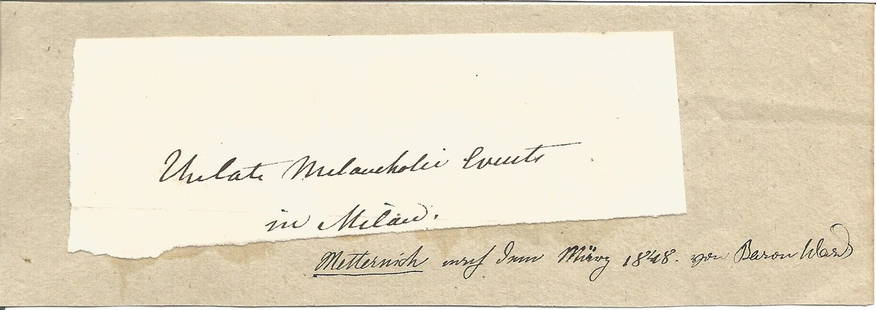 The late Melancholic Events
in Milan.
Metternich nach dem März 1848. von Baron Ward